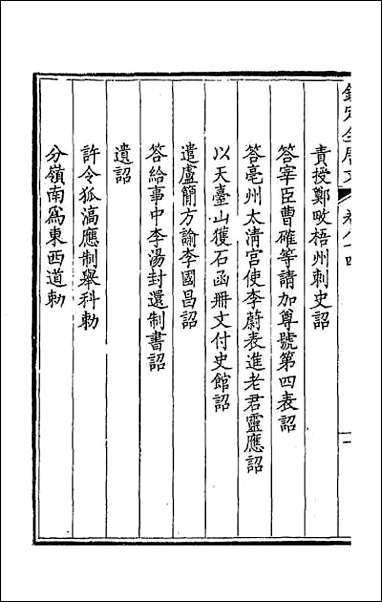 欽定全唐文 卷八十四 一
責授鄭畋梧州刺史詔
答宰臣曹確等請加尊號第四表詔
答亳州太清宮使李蔚表進老君靈應詔
以天臺山獲石函冊文付史館詔
遣盧簡方諭李國昌詔
答給事中李湯封還制書詔
遺詔
許令狐滈應制舉科勅
分嶺南為東西道勅